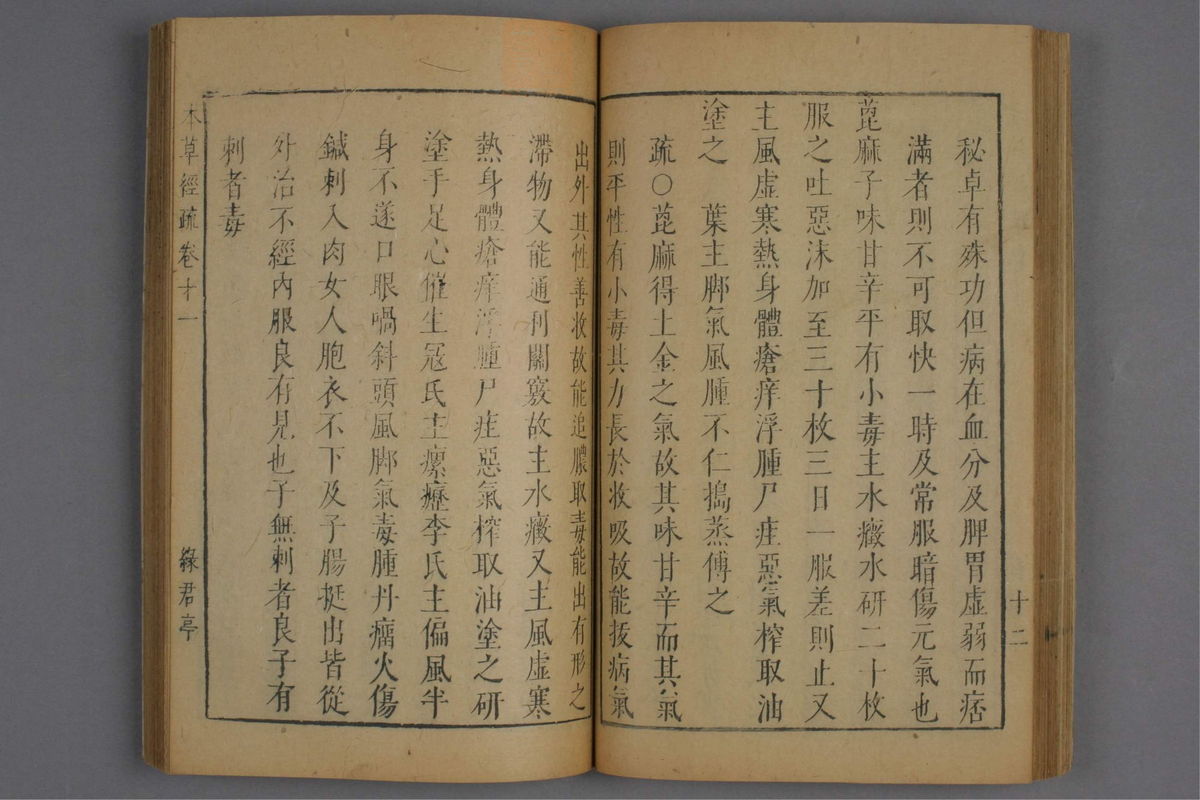 秘卓有殊功但病在血分及脾胃虛弱而痞
滿者則不可取快一時及常服暗傷元氣也
蓖麻子味甘辛平有小毒主水癥水研二十枚
服之吐惡沫加至三十枚三日一服差則止又
主風虛寒熱身體瘡痒浮腫尸疰惡氣榨取油
塗之　葉主脚氣風腫不仁搗蒸傅之
疏○蓖麻得土金之氣故其味甘辛而其氣
則平性有小毒其力長於收吸故能拔病氣
十二
出外其性善收故能追膿取毒能出有形之
滯物又能通利關竅故主水癥又主風虛寒
熱身體瘡痒浮腫尸疰惡氣榨取油塗之研
塗手足心催生冦氏主瘰癧李氏主偏風半
身不遂口眼喎斜頭風脚氣毒腫丹瘤火傷
鍼刺入肉女人胞衣不下及子腸挺出皆從
外治不經內服良有見也子無刺者良子有
刺者毒
本草經疏 卷十一
綠君亭